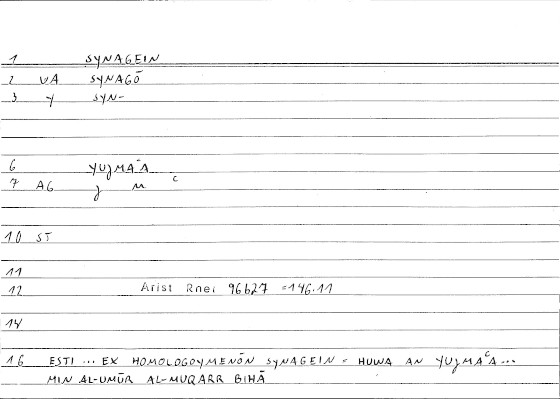 1 SYNAGEIN
2 VA SYNAGŌ
3 Y SYN-
6 YUJMAʿA
7 AG J M ʿ
10 ST
11
12 Arist Rhet 96b27 =146.11
14
16 ESTI ... EX HOMOLOGOYMENŌN SYNAGEIN = HUWA AN YUJMAʿA ...
MIN AL-UMŪR AL-MUQARR BIHĀ